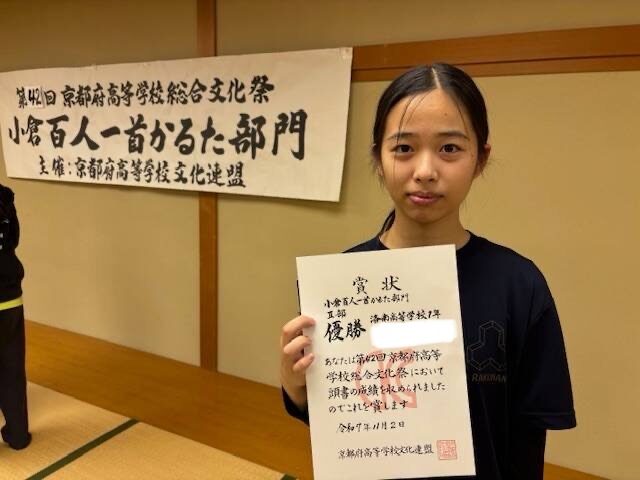 第42回 京都府高等学校総合文化祭
小倉百人一首かるた部門
主催：京都府高等学校文化連盟
賞状
小倉百人一首かるた部門
Ⅱ部
優勝 洛南高等学校1年
あなたは第42回京都府高等
学校総合文化祭において
頭書の成績を収められました
のでこれを賞します
令和7年11月2日
京都府高等学校文化連盟
RAKUNAN